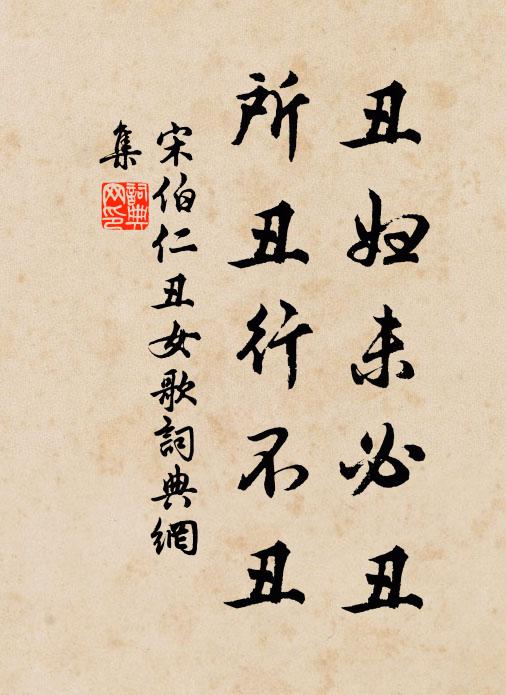 丑妇未必丑
所丑行不丑
宋伯仁丑女歌詞典網
集
詞典
网印